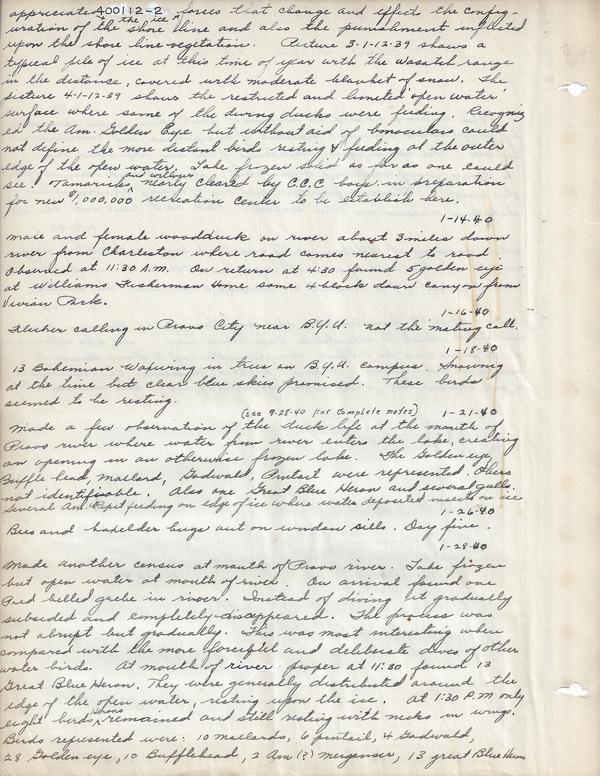 appreciated 400112-2 forces that change and effect the config-
uration of the shore the ice line and also the punishment inflicted
upon the shore line vegetation. Picture 3-1-12-39 shows a
typical pile of ice at this time of year with the Wasatch range
in the distance, covered with moderate blanket of snow. The
picture 4-1-12-39 shows the restricted and limited 'open water'
surface where some of the diving ducks were feeding. Recogniz
ed the Am. Golden Eye but without aid of binoculars could
not define the more distant birds resting & feeding at the outer
edge of the open water. Lake frozen solid as far as one could
see. Tamaricks and willows nearly cleared by C.C.C boys in preparation
for new $1,000,000 recreation center to be establish here.
1-14-40
Male and female woodduck on river about 3 miles down
river from Charleston where road comes nearest to road
Observed at 11:30 A.M. On return at 4:30 found 5 golden eye
at Williams Fisherman Home some 4 block down canyon from
Vivian Park.
1-16-40
Flicker calling in Provo City near B.Y.U. not the mating call.
1-18-40
13 Bohemian Waxwing in trees on B.Y.U. campus. Snowing
at the time but clear blue skies promised. These birds
seemed to be resting.
(see 9-28-40 for complete notes) 1-21-40
Made a few observation of the duck life at the mouth of
Provo river where water from river enters the lake, creating
an opening in an otherwise frozen lake. The Golden eye,
Buffle head, mallard, Gadwald, Pintail were represented. Others
not identifiable. Also one Great Blue Heron and several gulls.
Several Am. Pipit feeding on edge of ice where water deposited insects on ice
1-26-40
Bees and boxelder bugs out on window sills. Day fine.
1-28-40
Made another census at mouth of Provo river. Lake frozen
but open water at mouth of river. On arrival found one
Pied billed grebe in river. Instead of diving it gradually
subsided and completely disappeared. The process was
not abrupt but gradually. This was most interesting when
compared with the more forceful and deliberate dives of other
water birds. At mouth of river proper at 11:30 found 13
Great Blue Heron. They were generally distributed around the
edge of the open water, resting upon the ice. At 1:30 P.M only
eight birds, Herons remained and still resting with necks in wings.
Birds represented were: 10 mallards, 6 pintail, 4 Gadwald,
28 Golden eye, 10 Bufflehead, 2 Am (?) merganser, 13 great Blue Heron